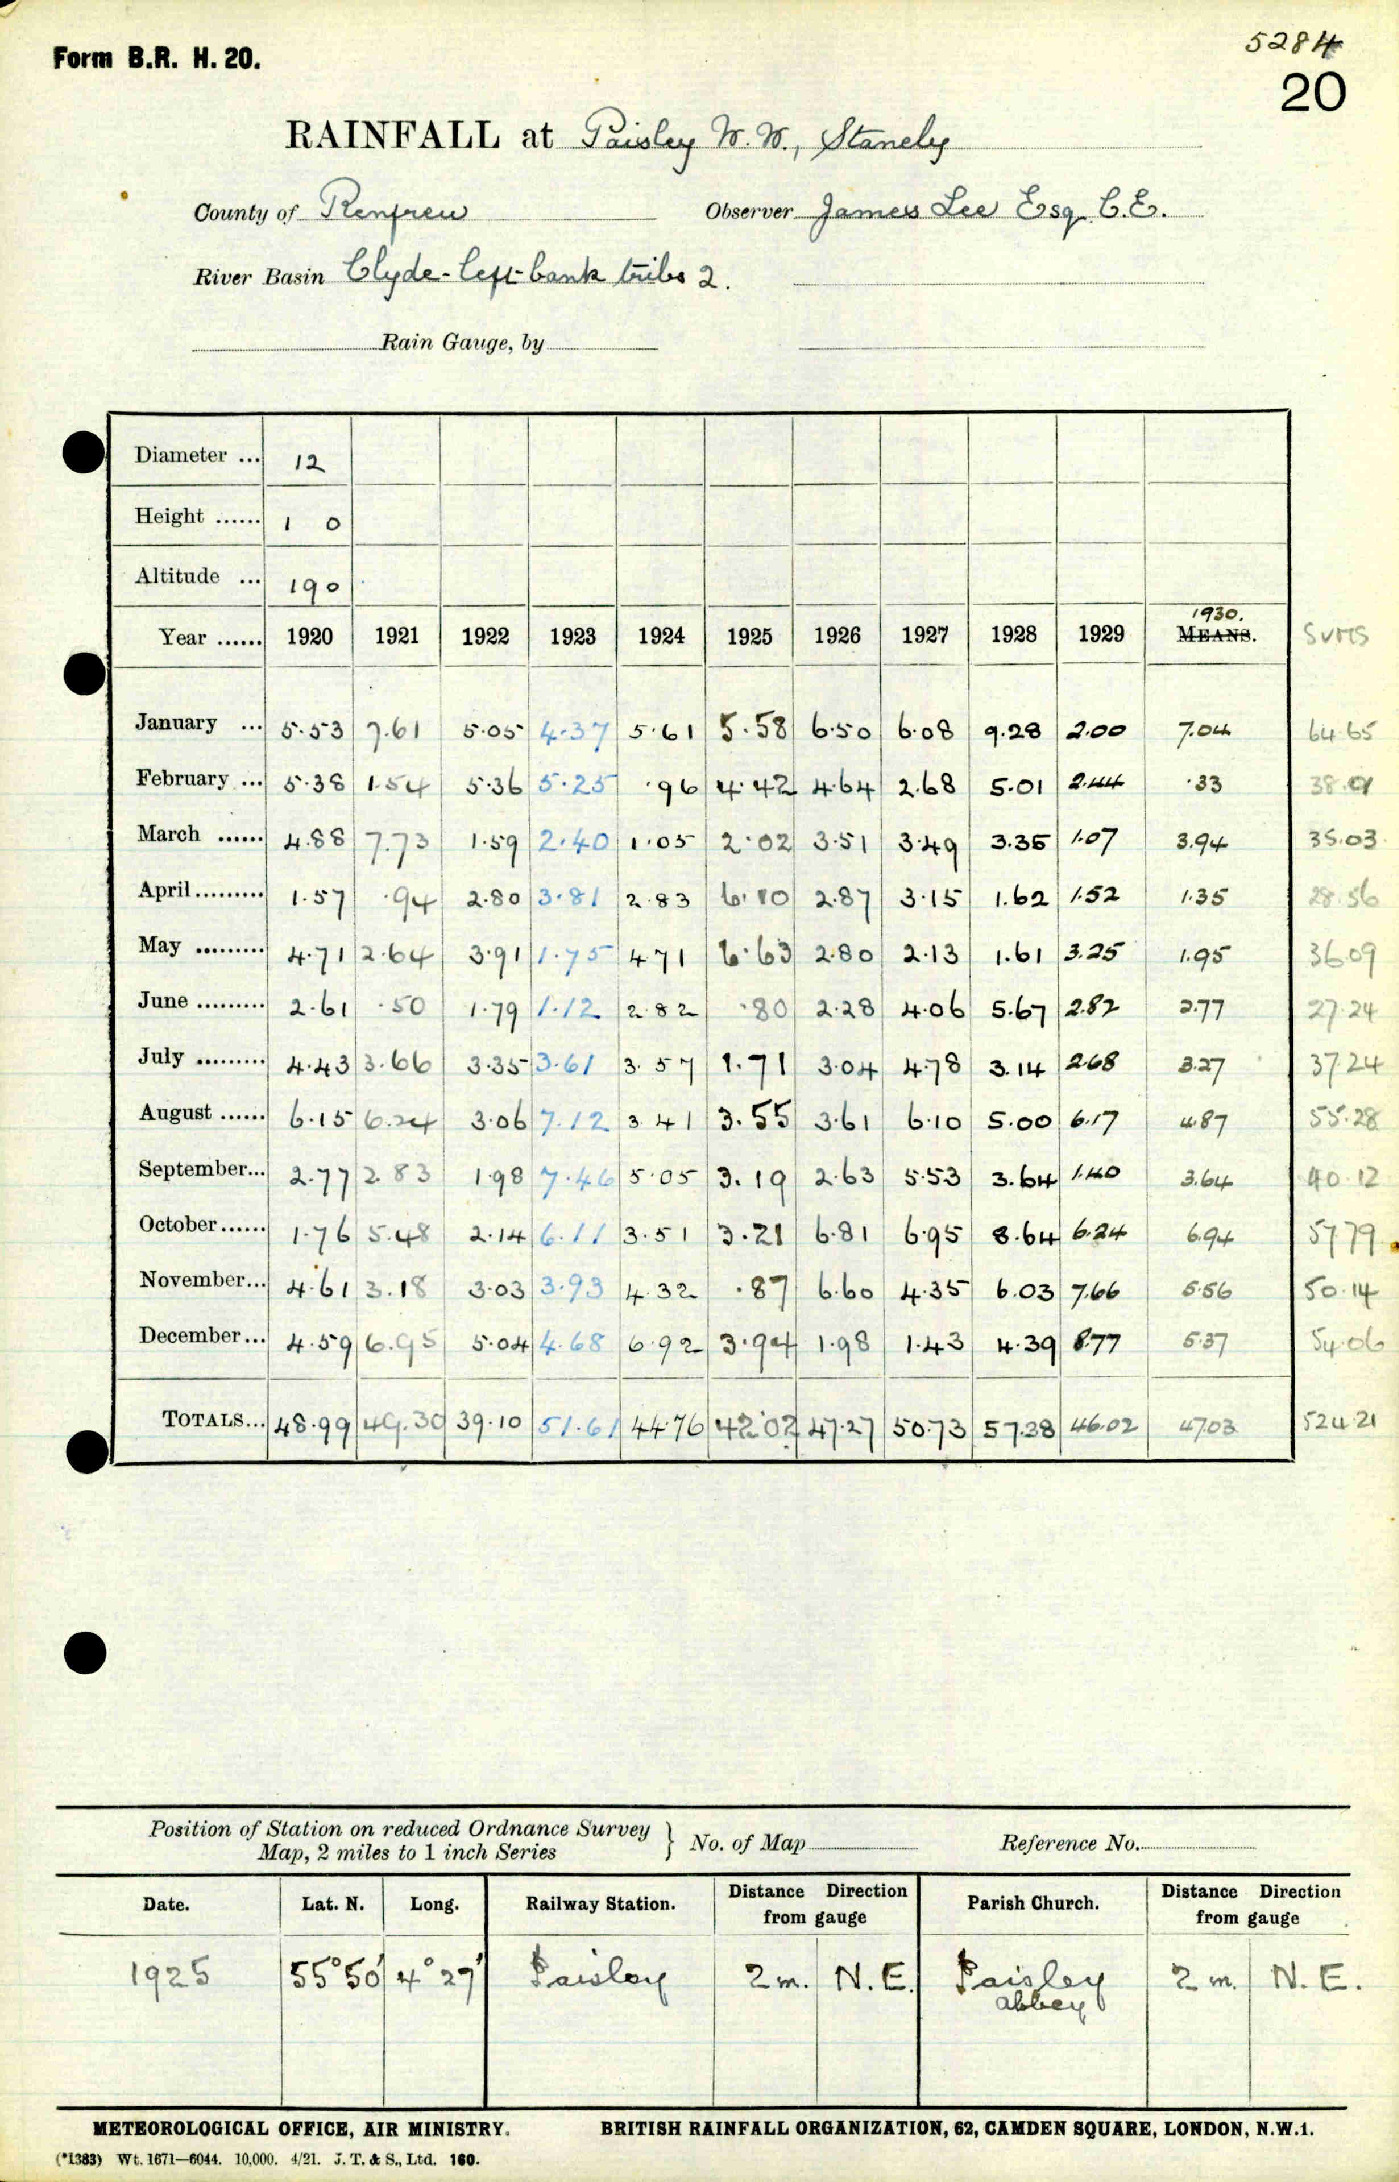 5284
Form B.R. H. 20.
20
RAINFALL at Paisley W.W., Stanely
County of Renfrew Observer James Lee Esq. C.E.
River Basin Clyde-left bank tribs 2.
Rain Gauge, by
Diameter ... 12
Height ...... 1 0
Altitude ... 190
Year ...... 1920 1921 1922 1923 1924 1925 1926 1927 1928 1929 1930. MEANS. SUMS
January ... 5.53 7.61 5.05 4.37 5.61 5.58 6.50 6.08 9.28 2.00 7.04 64.65
February ... 5.38 1.54 5.36 5.25 .96 4.42 4.64 2.68 5.01 2.44 .33 38.01
March ...... 4.88 7.73 1.59 2.40 1.05 2.02 3.51 3.49 3.35 1.07 3.94 35.03
April ......... 1.57 .94 2.80 3.81 2.83 6.10 2.87 3.15 1.62 1.52 1.35 28.56
May ......... 4.71 2.64 3.91 1.75 4.71 6.63 2.80 2.13 1.61 3.25 1.95 36.09
June ......... 2.61 .50 1.79 1.12 2.82 .80 2.28 4.06 5.67 2.82 2.77 27.24
July ......... 4.43 3.66 3.35 3.61 3.57 1.71 3.04 4.78 3.14 2.68 3.27 37.24
August ...... 6.15 6.24 3.06 7.12 3.41 3.55 3.61 6.10 5.00 6.17 4.87 55.28
September... 2.77 2.83 1.98 7.46 5.05 3.19 2.63 5.53 3.64 1.40 3.64 40.12
October...... 1.76 5.48 2.14 6.11 3.51 3.21 6.81 6.95 8.64 6.24 6.94 57.79
November... 4.61 3.18 3.03 3.93 4.32 .87 6.60 4.35 6.03 7.66 5.56 50.14
December... 4.59 6.95 5.04 4.68 6.92 3.94 1.98 1.43 4.39 8.77 5.37 54.06
TOTALS... 48.99 49.30 39.10 51.61 44.76 42.02 47.27 50.73 57.38 46.02 47.03 524.21
Position of Station on reduced Ordnance Survey
Map, 2 miles to 1 inch Series } No. of Map Reference No.
Date. Lat. N. Long. Railway Station. Distance Direction from gauge Parish Church. Distance Direction from gauge
1925 55°50' 4°27' Paisley 2 m. N.E. Paisley abbey 2 m. N.E.
METEOROLOGICAL OFFICE, AIR MINISTRY. BRITISH RAINFALL ORGANIZATION, 62, CAMDEN SQUARE, LONDON, N.W.1.
(*1383) Wt. 1671—6044. 10,000. 4/21. J. T. & S., Ltd. 160.